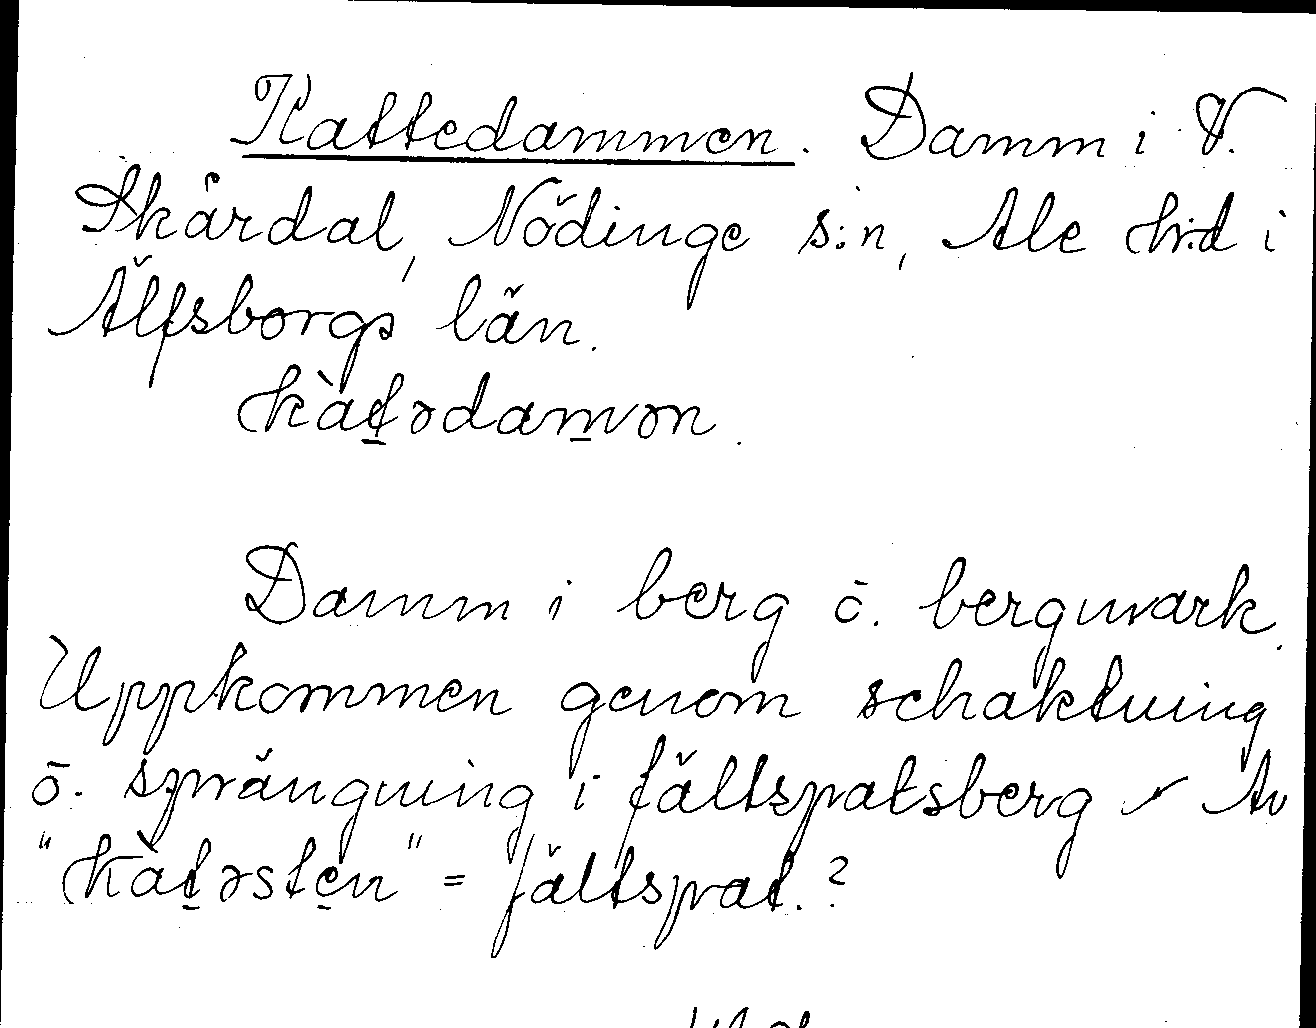 Kattedammen. Damm i V.
Skårdal, Nödinge s:n, Ale h:d i
Älfsborgs län.
kàt̠ədam̠ən.
Damm i berg o. bergmark.
Uppkommen genom schaktning
o. sprängning i fältspatsberg Av
"kàt̠əste̠n" = fältspat.?